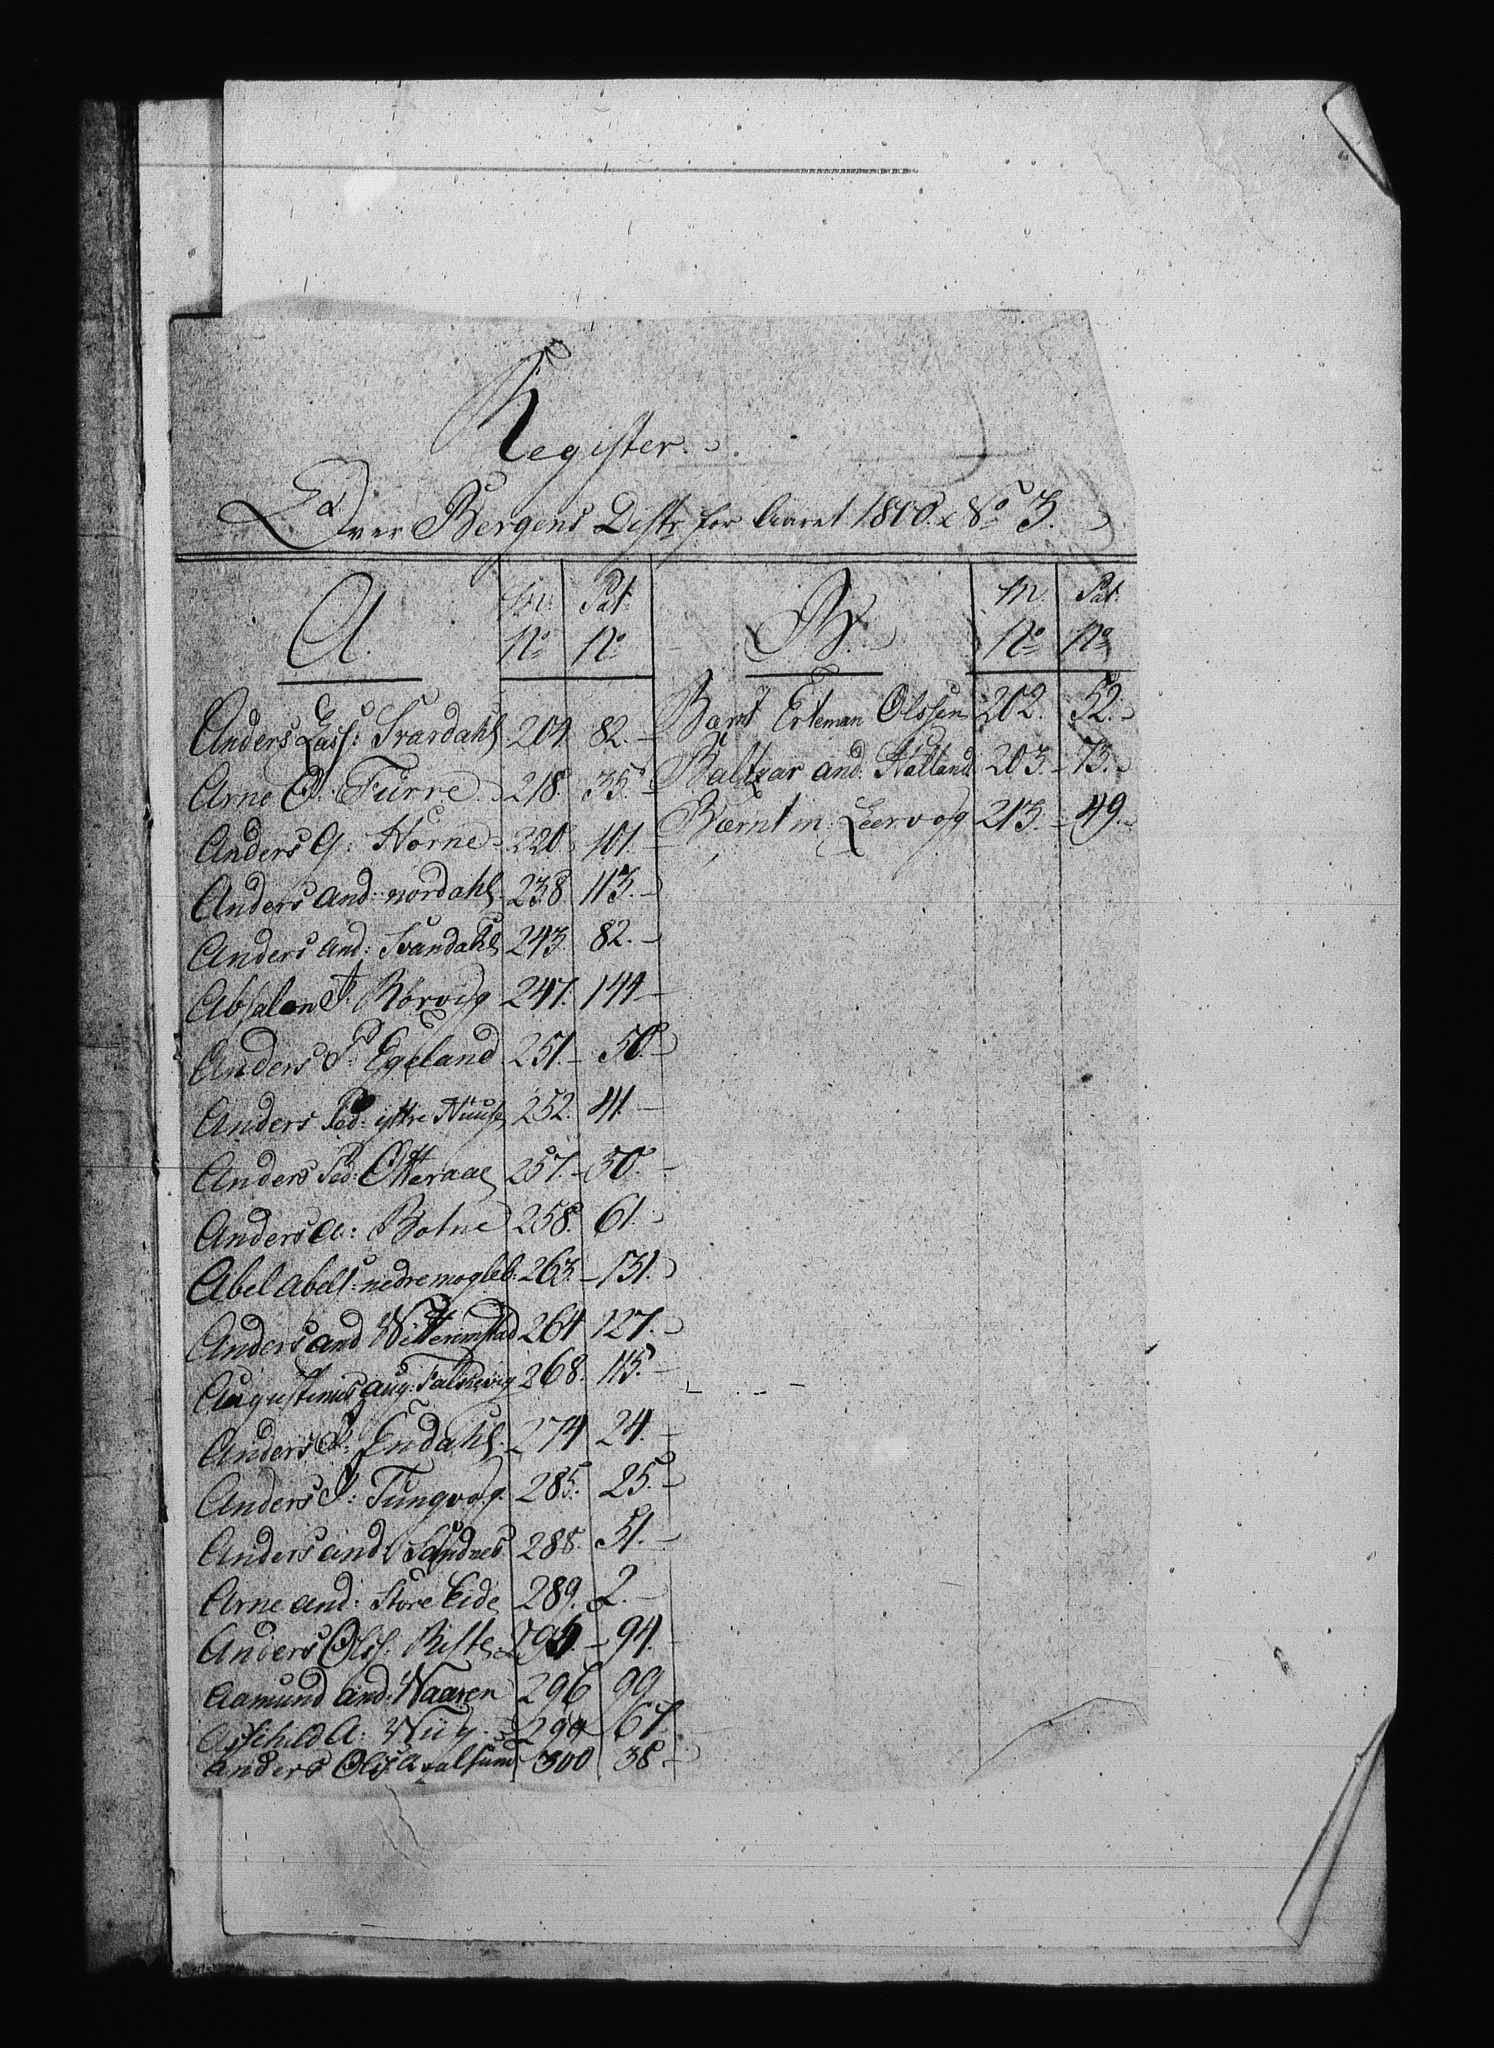 Register.
Over Bergens Distr: for Aaret 1800. No 3.
A. m: No Pat: No
Anders Lass: Svardahl 204. 82.
Arne O: Furre 218. 35.
Anders G: Horne 220. 101.
Anders And: Nordahl 238. 113.
Anders And: Svandahl 243. 82.
Absalon J: Rørvig 247. 144
Anders P: Egeland 251. 50.
Anders Ped: yttre Huuse 252. 41.
Anders Ped: Otteraae 257. 30.
Anders A: Botne 258. 61.
Abel Abels: nedremogleb: 263. 131.
Anders And Witterimstad 264 127.
Augustinus Aug: Falkevig 268. 115.
Anders P: Endahl 274 24.
Anders J: Tungvog 285. 25.
Anders And: Sandnes 288. 51.
Arne And: Store Eide 289. 2.
Anders Olss: Riste 295. 94.
Aamund And: Waaren 296 99
A: 67.
Anders Ols: 300 38
B. m. No Pat: No
Bærnt Erteman Olssen 202. 52.
Baltzar And: Hatland 203. 73.
Bærnt m: Leervog 213. 49.